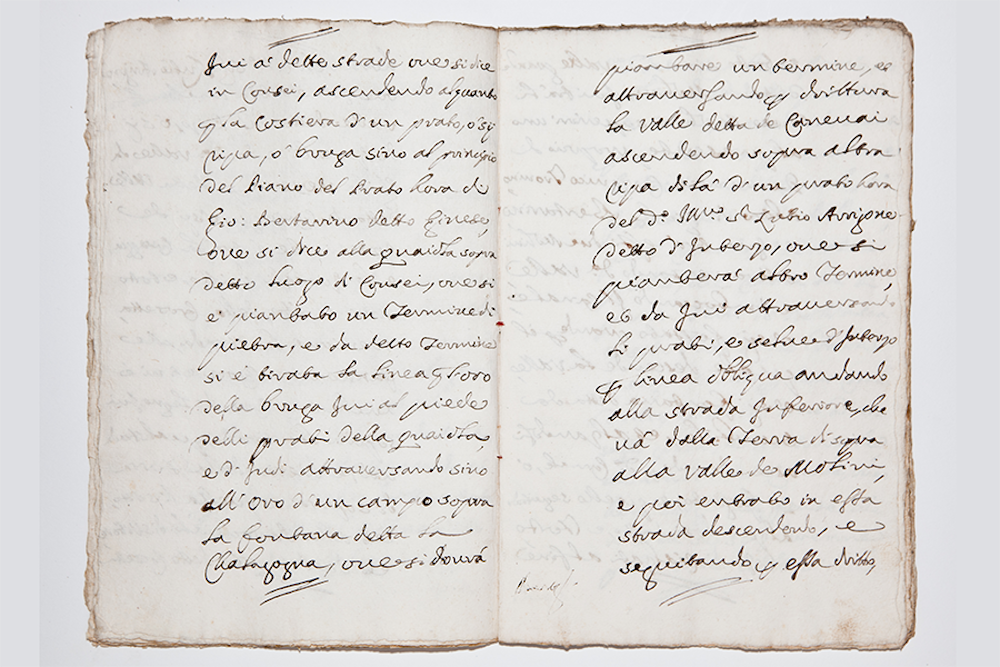 Jui á dette strade oue si dice
in Consei, ascendendo alquanto
la Costiera d'un prato, ó sij
ripa, ó bruga sino al principio
del Piano del Prato hora di
Gio: Bertarino detto Ginese,
oue si dice alla guaiola sopra
detto luogo di Consei, oue si
é piantato un Termine di
pietra, e da detto Termine
si é tirata la linea l'oro
della bruga Jui al piede
delli prati della guaiola,
e d'Jndi attrauersando sino
all'Oro d'un campo sopra
la fontana detta la
Chatagogna, oue si dourá
piantare un termine, et
attrauersando drittura
la Valle detta de Caneuai
ascendendo sopra altra
ripa di lá d'un prato hora
del d.º Jll.mo S.r Arrigone
detto d'Juberzo, oue si
pianterá altro Termine,
et da Jui attrauersando
li prati, e selue d'Juberzo
linea obliqua andando
alla strada Jnferiore, che
uá dalla Terra di sopra
alla Valle de Molini,
e poi entrato in essa
strada descendendo, e
seguitando essa dritto,